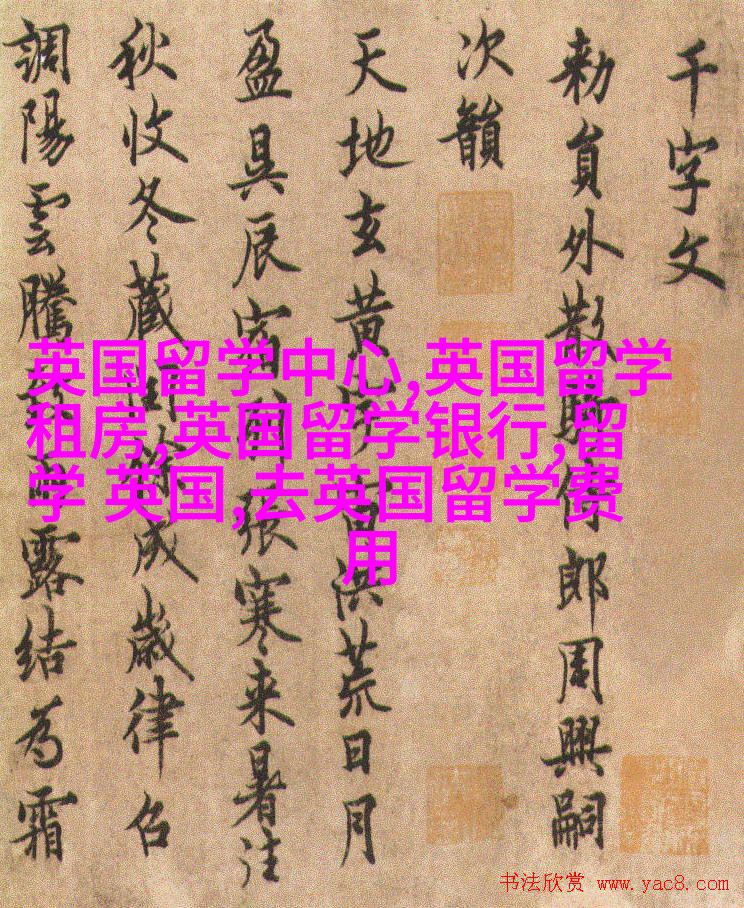 千字文
勅員外散騎侍郎周興嗣
次韻
天地玄黃宇宙洪荒日月
盈昃辰宿列張寒来暑往
秋收冬蔵閏餘成歲律召
調陽雲騰致雨露結為霜
英国留学中心,英国留学
租房,英国留学银行,留
学 英国,去英国留学费
用
书法欣赏 www.yac8.com